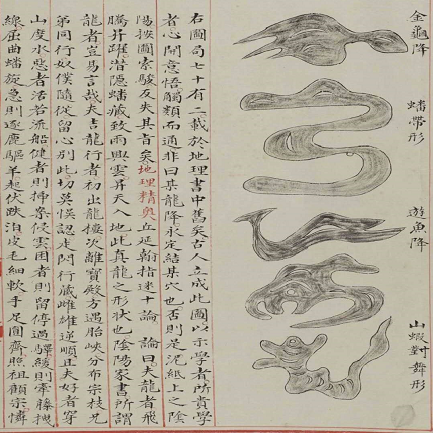 金龜降
蟠帶形
遊魚降
山蝦對舞形
右圖局七十有二載於地理書中舊矣古人立成此圖以示學者所貴學
者心開意悟觸類而通非曰某龍降永定結某穴也否則是泥紙上之陰
陽按圖索駿反失其旨矣地理精奧立延翰指迷十論 論曰夫龍者飛
騰昇躍潛隱蟠藏致雨興雲昇天入地此真龍之形狀也陰陽家書所謂
龍者豈易言哉吉龍行者初出龍樓次離寶殿方遇胎峽分布宗枝兄
弟同行奴僕隨從留心別此切莫悮認走閃行藏雌雄逆順正夫好者穿
山度水惡者活若流船健者則排雲候雲困者則留停過驛緩則牽藤拽
線屈曲蟠旋急則逐鹿驅羊起伏跌泊皮毛細軟手足圓齊照祖顧宗憐